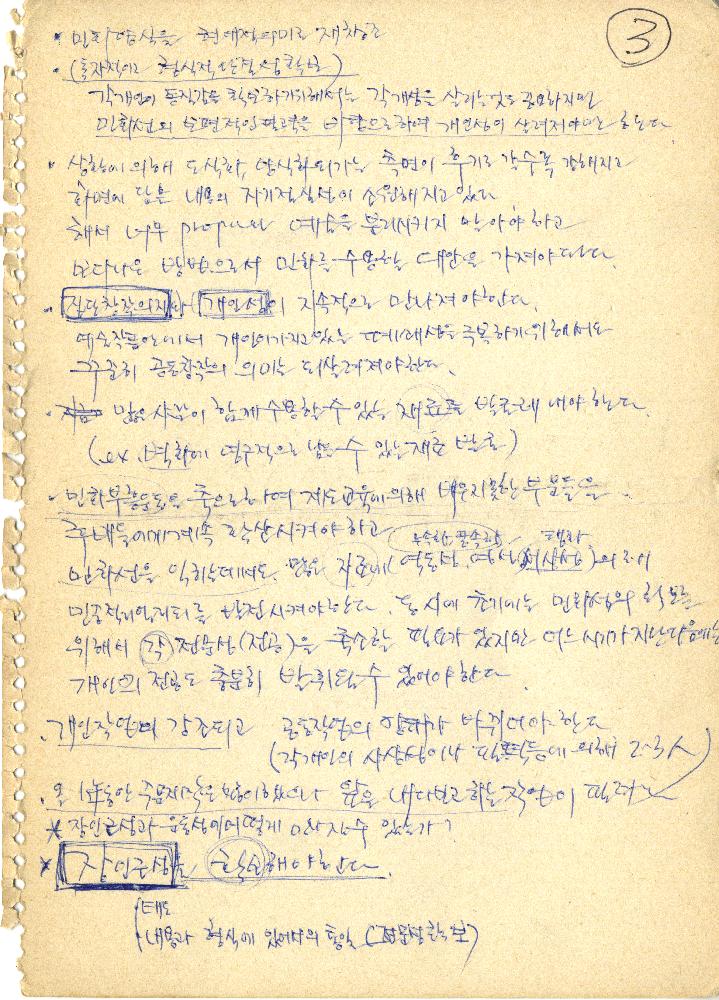 ③
· 민화양식을 현대적의미로 재창조
· (독자적이고 형식적 단일성 확보)
각개인이 동질감을 확보하기위해서는 각개성을 살리는것도 중요하지만
민화선의 보편적인 필력을 바탕으로하여 개인성이 살려져야만 한다.
· 상황에 의해 도식화, 양식화 되가는 측면이 후기로 갈수록 강해지고
화면에 담은 내용의 자기진실성이 소원해지고 있다
해서 너무 propa와 예술을 분리시키지 말아야 하고
보다나은 방법으로서 민화를 수용할 대안을 가져야 한다.
· 집단창작의지와 개인성이 지속적으로 만나져야한다.
예술작품안에서 개인이 가지고있는 폐쇄성을 극복하기위해서도
꾸준히 공동창작의 의미는 되살려져야한다.
· 많은 사람이 함께 수용할수 있는 재료를 발굴해 내야 한다.
(ex 벽화에 영구적으로 남을 수 있는 재료 발굴)
· 민화부흥운동을 축으로하여 제도교육에 의해 배우지못한 부분들을
후배들에게 계속 확산시켜야 하고
민화선을 익히는데에도 많은 자료에 (역동성 사상성)의
민족적 발전시켜야한다. 동시에 초기에는 민화섬의 확보를
위해서 각 전문성(전공)을 축소할 필요가 있지만 어느 시기가 지난다음에는
개인의 전공도 충분히 발휘될수 있어야 한다.
· 개인작업이 강조되고 공동작업의 형태가 바뀌어야 한다
(각개인의 사상성이나 필력등에 의해 2·3人)
· 올 1年동안 주문제작은 많이했으나 앞을 내다보고하는 작업이 필요
* 장인근성과 운동성이 어떻게 만나질수 있는가?
* 장인근성을 확보해야한다.
태도
내용과 형식에 있어서의 통일 (전문성확보)